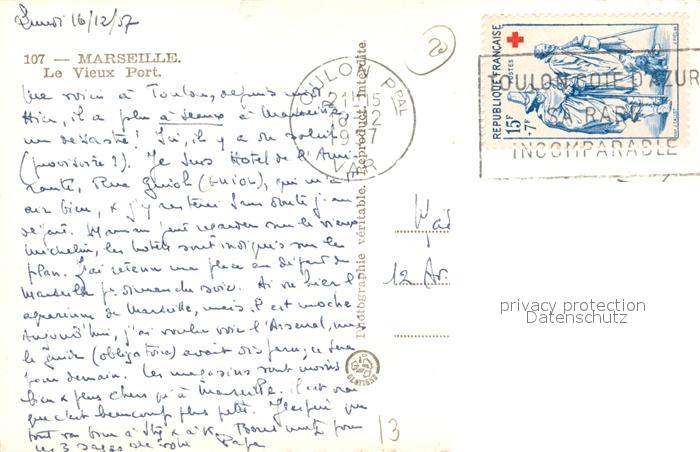 Lundi 16/12/57
107 — MARSEILLE.
Le Vieux Port.
Me voici à Toulon, depuis midi
Hier, il a plu à seaux à Marseille
un désastre! Ici, il y a du soleil
(provisoire?). Je suis Hotel de l'Ami
rauté, Rue Guiol (GUIOL), qui m'a
bien, & j'y resterai sans doute j
Maman peut regarder sur le vieux
Michelin, les hotels sont indiqués sur le
plan. J'ai retenu une place au départ de
Marseille pr dimanche soir. Ai vu hier l'
aquarium de Marseille, mais il est moche
Aujourd'hui, j'ai voulu voir l'Arsenal, mais
le guide (obligatoire) avait disparu, ce sera
pour demain. Les magasins sont moins
bien & plus chers qu'à Marseille. Il est vrai
que c'est beaucoup plus petit. J'espère que
tout va bien à & à Bons pour
les 3 Papa
Photographie véritable. Reproduct. interdite.
TOULON PPAL
1957
VAR
20
RÉPUBLIQUE FRANÇAISE
POSTES
15F
+7F
TOULON COTE D'AZUR
SA RADE
INCOMPARABLE
12 Av.
privacy protection
Datenschutz
13